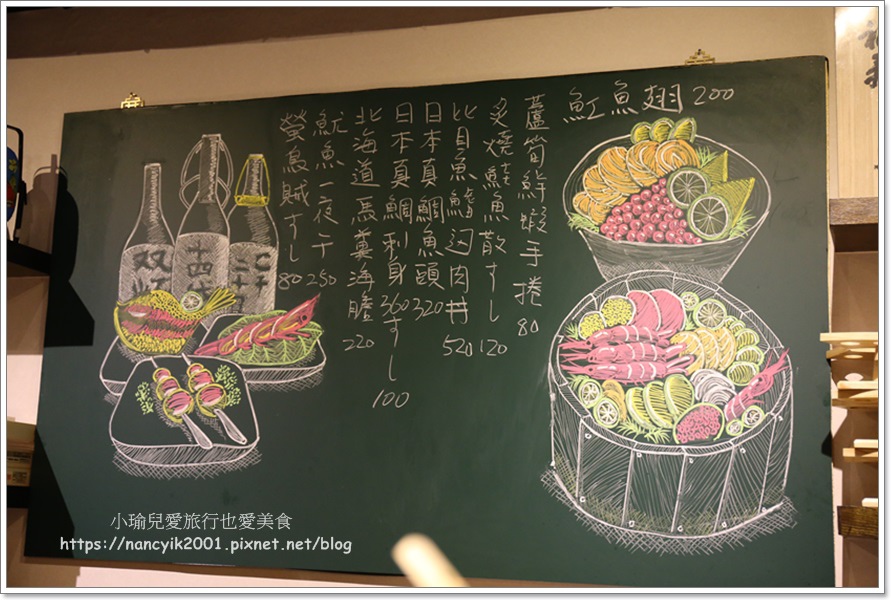 魟魚翅 200
蘆筍鮮蝦手捲 80
炙燒鮭魚散すし 120
比目魚鰭迴肉丼 520
日本真鯛魚頭 320
日本真鯛刺身 360 すし 100
北海道馬糞海膽 220
魷魚一夜干 250
螢烏賊すし 80
十四代
小瑜兒愛旅行也愛美食
https://nancyik2001.pixnet.net/blog